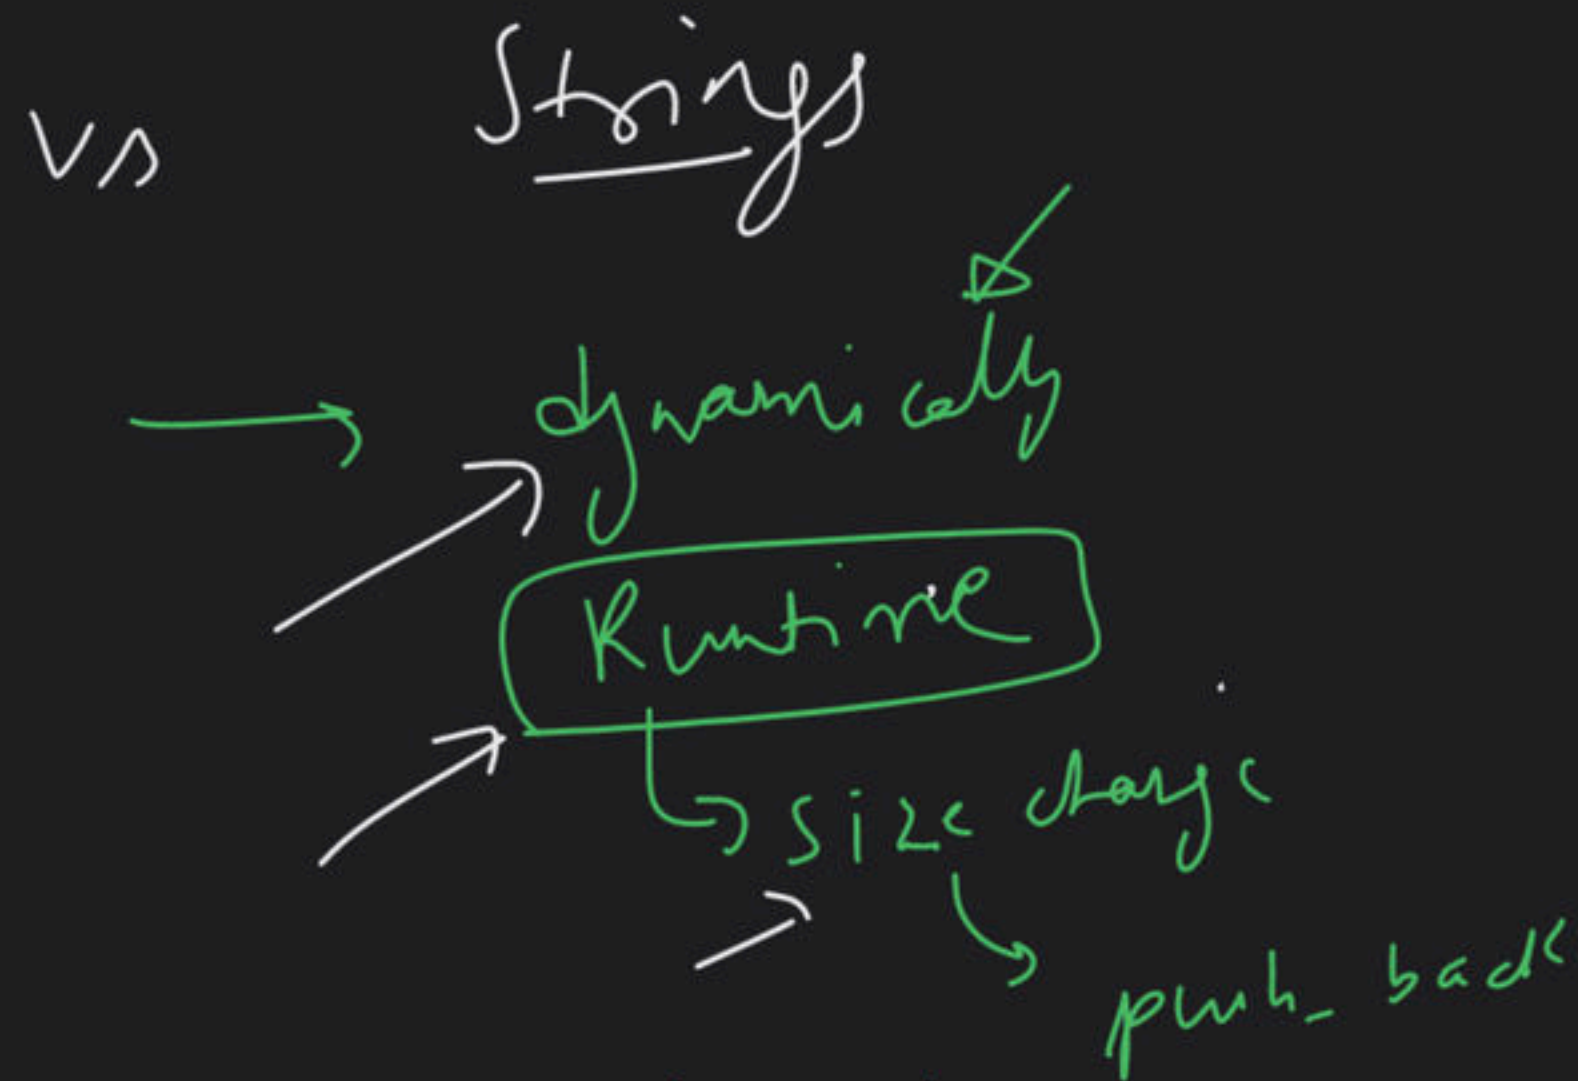 vs Strings
dynamically
Runtime
size change
push_back